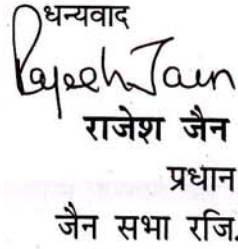 धन्यवाद
Rajesh Jain
राजेश जैन
प्रधान
जैन सभा रजि.